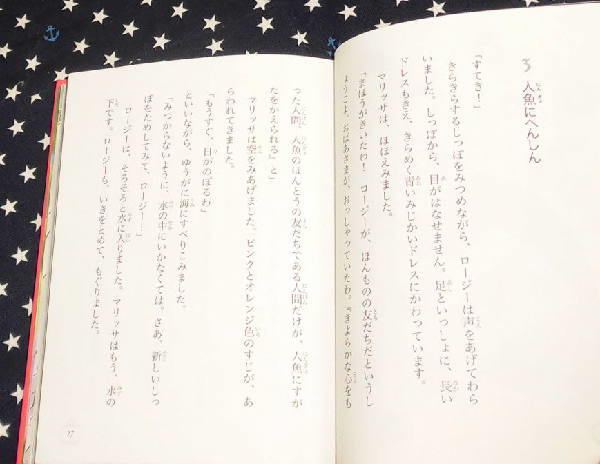 3 人魚にへんしん
「すてき！」
きらきらするしっぽをみつめながら、ロージーは声をあげてわら
いました。しっぽから、目がはなせません。足といっしょに、長い
ドレスもきえ、きらめく青いみじかいドレスにかわっています。
マリッサは、ほほえみました。
「まほうがきいたわ！ ロージーが、ほんものの友だちだというし
ようこよ。おばあさまが、おっしゃっていたわ。『きよらかな心をも
った人間、人魚のほんとうの友だちである人間だけが、人魚にすが
たをかえられる』と」
マリッサは空をみあげました。ピンクとオレンジ色のすじが、あ
らわれてきました。
「もうすぐ、日がのぼるわ」
といいながら、ゆうがに海にすべりこみました。
「みつからないように、水の中にいかなくては。さあ、新しいしっ
ぽをためしてみて、ロージー……」
ロージーは、そろそろと水に入りました。マリッサはもう、水の
下です。ロージーも、いきをとめて、もぐりました。
17